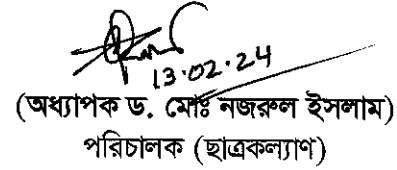 13.02.24
(অধ্যাপক ড. মোঃ নজরুল ইসলাম)
পরিচালক (ছাত্রকল্যাণ)